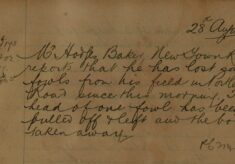 28th Aug
Mr Horsfy Baker, New Town R
reports that he has lost 90
fowls from his field in Portla
Road since this morning. The
head of one fowl has been
pulled off & left and the bo
taken away.